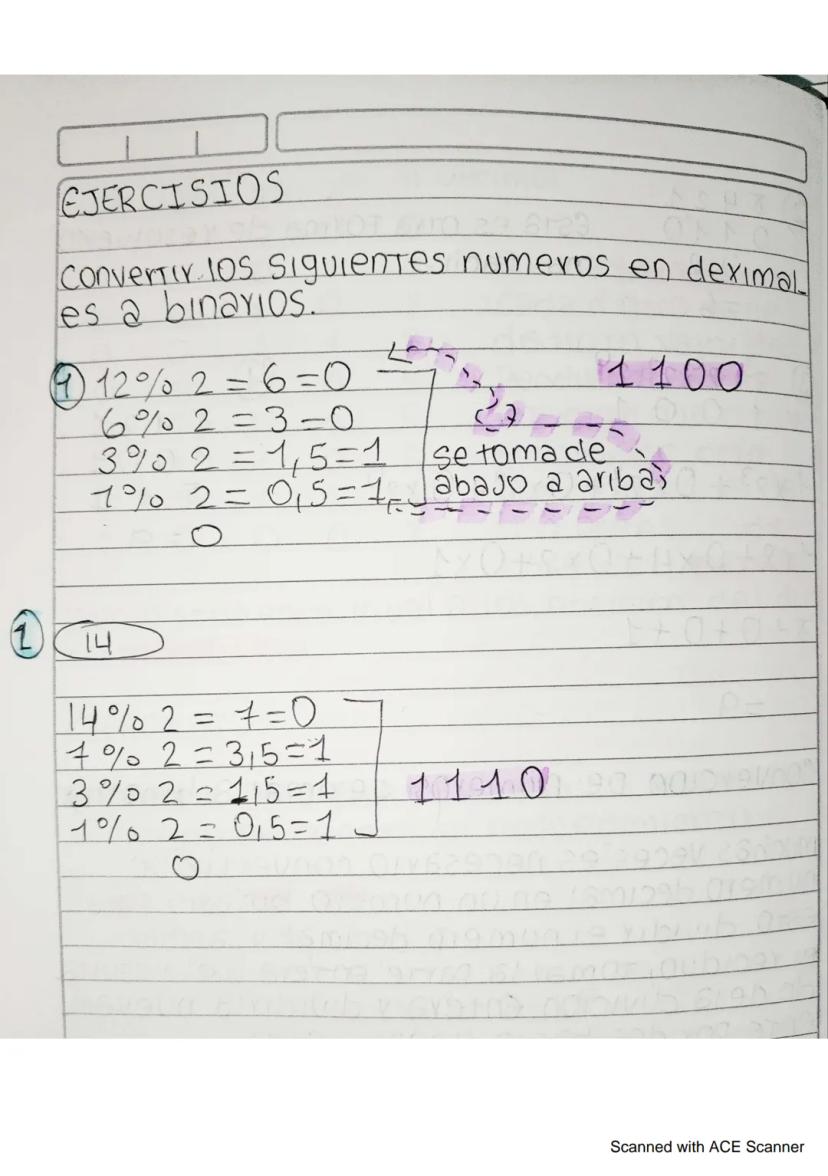 EJERCISIOS
convertir los siguientes numeros en deximal-
es a binarios.
1 12% 2 = 6 = 0
1100
6% 2 = 3 = 0
3% 2 = 1,5 = 1
se toma de
1% 2 = 0,5 = 1
abajo a aribas
0
1 14
14% 2 = 7 = 0
7% 2 = 3,5 = 1
3% 2 = 1,5 = 1
1110
1% 2 = 0,5 = 1
0
Scanned with ACE Scanner